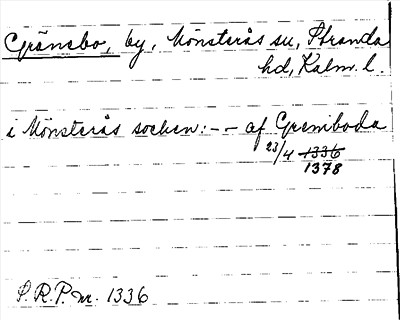 Gränsbo, by, Mönsterås sn, Stranda
hd, Kalm. l.
i Mönsterås socken: - - af Gremboda
23/4 1336
1378
S. R. P. nr. 1336